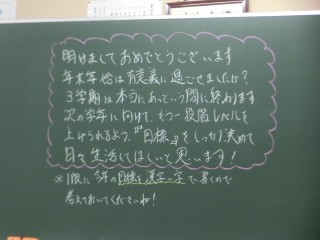 明けましておめでとうございます
年末年始は有意義に過ごせましたか?
3学期は本当にあっという間に終わります
次の学年に向けて、もう一段階レベルを
上げられるよう、『目標』をしっかり決めて
日々生活してほしいと思います!
今年の目標を漢字一字で書くので
考えておいてくださいね!